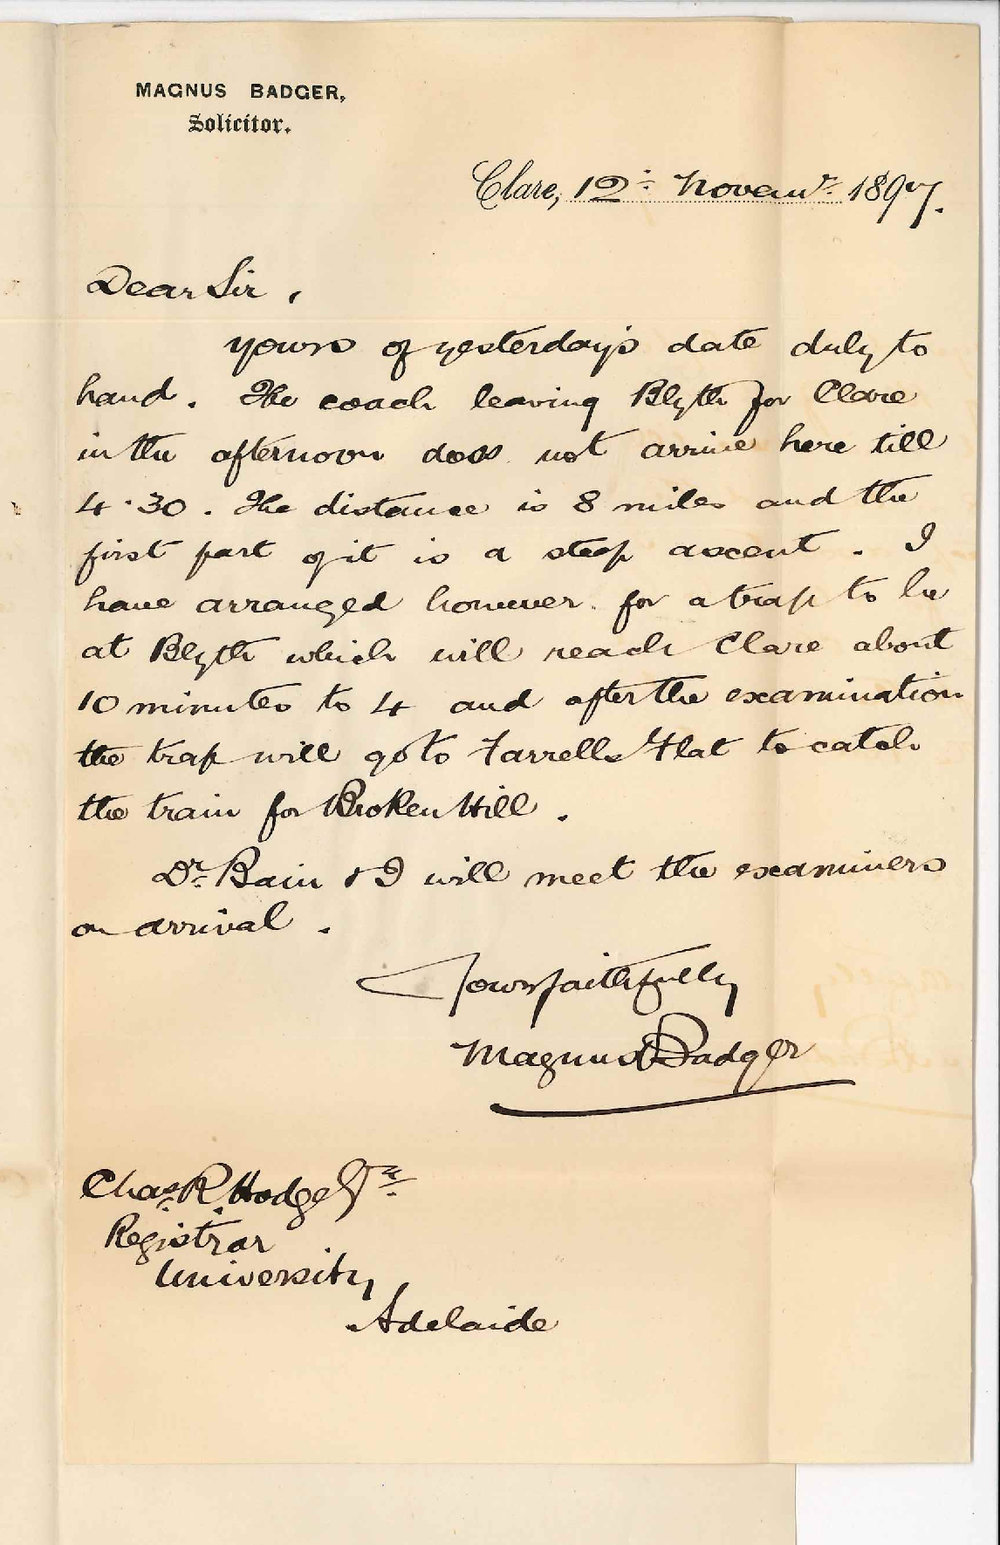 MAGNUS BADGER,
Solicitor.
Clare, 12: Novemr. 1897.
Dear Sir,
Yours of yesterday's date duly to
hand. The coach leaving Blyth for Clare
in the afternoon does not arrive here till
4.30. The distance is 8 miles and the
first part of it is a steep ascent. I
have arranged however for a trap to be
at Blyth which will reach Clare about
10 minutes to 4 and after the examination
the trap will go to Farrells Flat to catch
the train for Broken Hill.
Dr. Bain & I will meet the examiners
on arrival.
Yours faithfully
Magnus Badger
Chas. R. Hodge Esqr.
Registrar
University
Adelaide